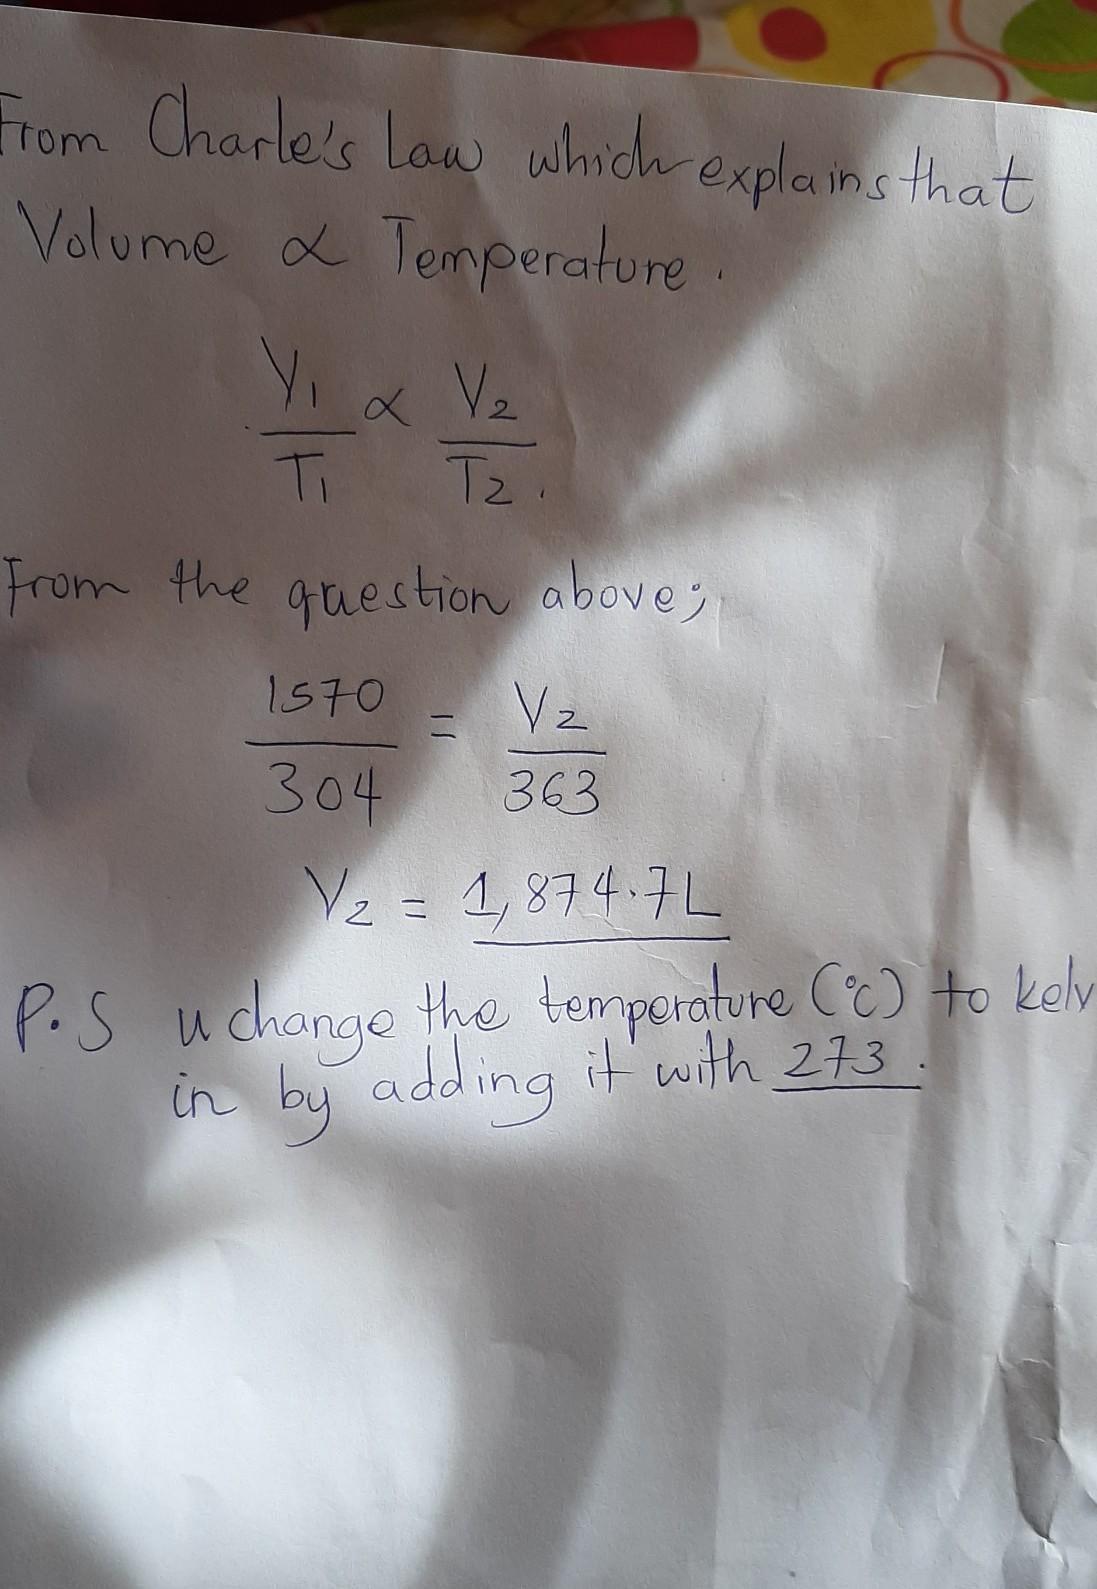 From Charle's Law which explains that
Volume ∝ Temperature.
V1 ∝ V2
T1 T2.
From the question above;
1570 = V2
304 363
V2 = 1,874.7L
P.S u change the temperature (°C) to kelv
in by adding it with 273.